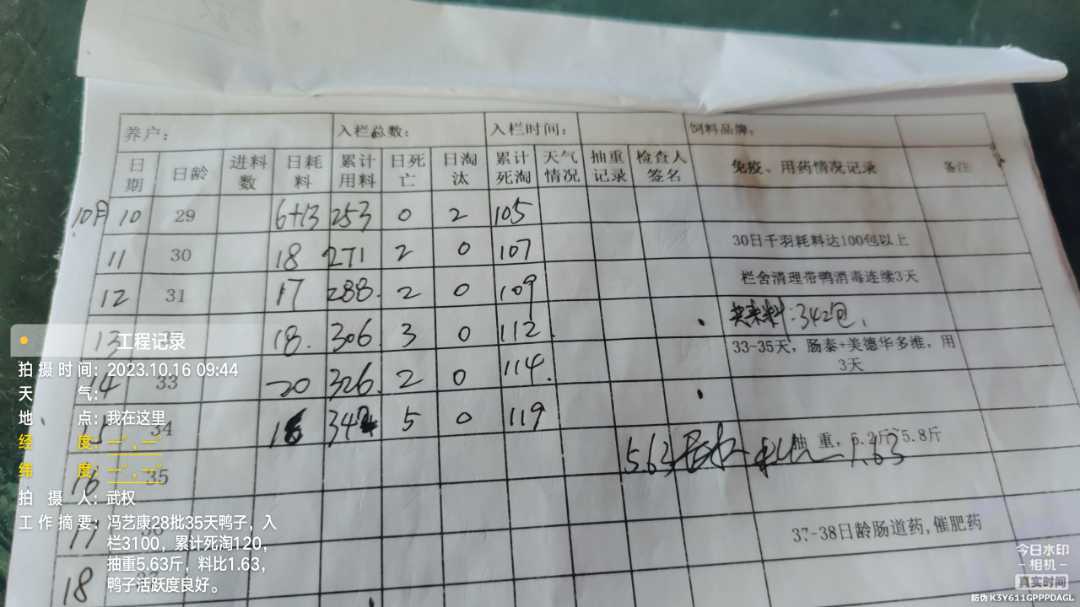 养户： 入栏总数： 入栏时间： 饲料品牌：
日期 日龄 进料数 日耗料 累计用料 日死亡 日淘汰 累计死淘 天气情况 抽重记录 检查人签名 免疫、用药情况记录 备注
10月10 29 6+13 253 0 2 105
11 30 18 271 2 0 107 30日千羽耗料达100包以上
12 31 17 288. 2 0 109 栏舍清理带鸭消毒连续3天
13 18. 306. 3 0 112. 共来料:342包.
33-35天，肠泰+美德华多维，用3天
14 33 20 326. 2 0 114.
15 34 16 342 5 0 119
5.63 料比 1.63
抽重 5.8斤
16 35
17 37-38日龄肠道药，催肥药
18
工程记录
拍摄时间：2023.10.16 09:44
天气：
地点：我在这里
经度：—°, —°
纬度：—°, —°
拍摄人：武权
工作摘要：冯艺康28批35天鸭子，入
栏3100，累计死淘120，
抽重5.63斤，料比1.63，
鸭子活跃度良好。
今日水印
-相机-
真实时间
防伪 K3Y611GPPPDAGL